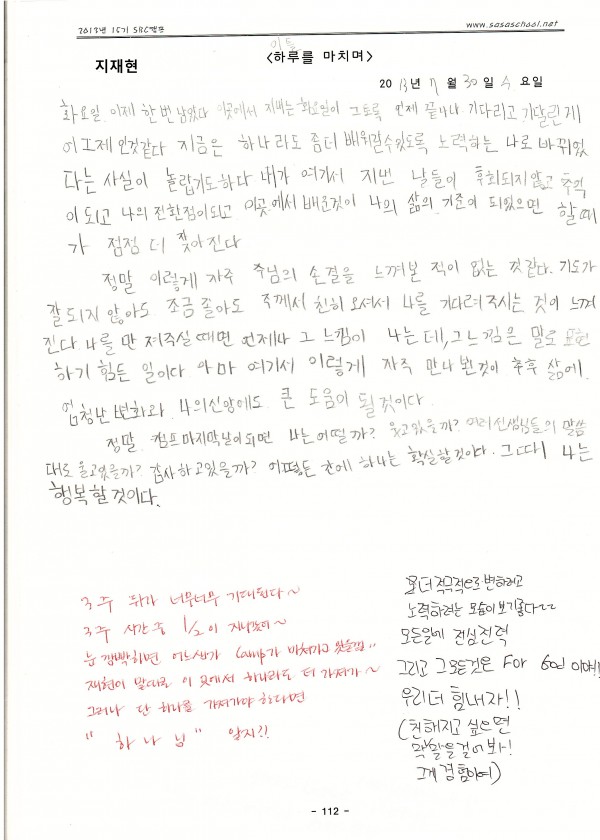 2013년 15기 SBC캠프
www.sasaschool.net
이틀
<하루를 마치며>
지재현
2013년 7월 30일 수요일
화요일 이제 한번 남았다 이곳에서 지내는 화요일이 그토록 언제 끝나나 기다리고 기달린게
어그제 인것같다 지금은 하나라도 좀더 배워갈수있도록 노력하는 나로 바뀌었
다는 사실이 놀랍기도하다 내가 여기서 지낸 날들이 후회되지않고 추억
이 되고 나의 전환점이되고 이곳에서 배운것이 나의 삶의 기준이 되었으면 할때
가 점점 더 잦아진다
정말 이렇게 자주 주님의 손결을 느껴본 적이 없는 것 같다. 기도가
잘 되지 않아도 조금 졸아도 주께서 친히 오셔서 나를 기다려주시는 것이 느껴
진다 나를 만져주실 때면 언제나 그 느낌이 나는데, 그느낌은 말로 표현
하기 힘든 일이다 아마 여기서 이렇게 자주 만나 본것이 추후 삶에
엄청난 변화과 나의신앙에도 큰 도움이 될 것이다.
정말 캠프마지막날이되면 나는어떨까? 웃고있을까? 여러선생님들의 말씀
대로 울고있을까? 감사하고있을까? 어떻든 간에 하나는 확실할것이다. 그때 나는
행복할것이다.
3주 뒤가 너무너무 기대된다~
3주 시간 중 1/2이 지나갔어~
눈 깜빡하면 어느새가 Camp가 마쳐가고 있을걸..
재현이 말대로 이 곳에서 하나라도 더 가져가~
그러나 단 하나를 가져가야 한다면
" 하 나 님 " 알지?!
좀 더 적극적으로 변하려고
노력하려는 모습이 보기좋다~~
모든일에 전심전력
그리고 그 모든것은 For God 이야!!
우리 더 힘내자!!
(친해지고 싶으면
막 말을걸어봐!
그게 경험이여)
- 112 -